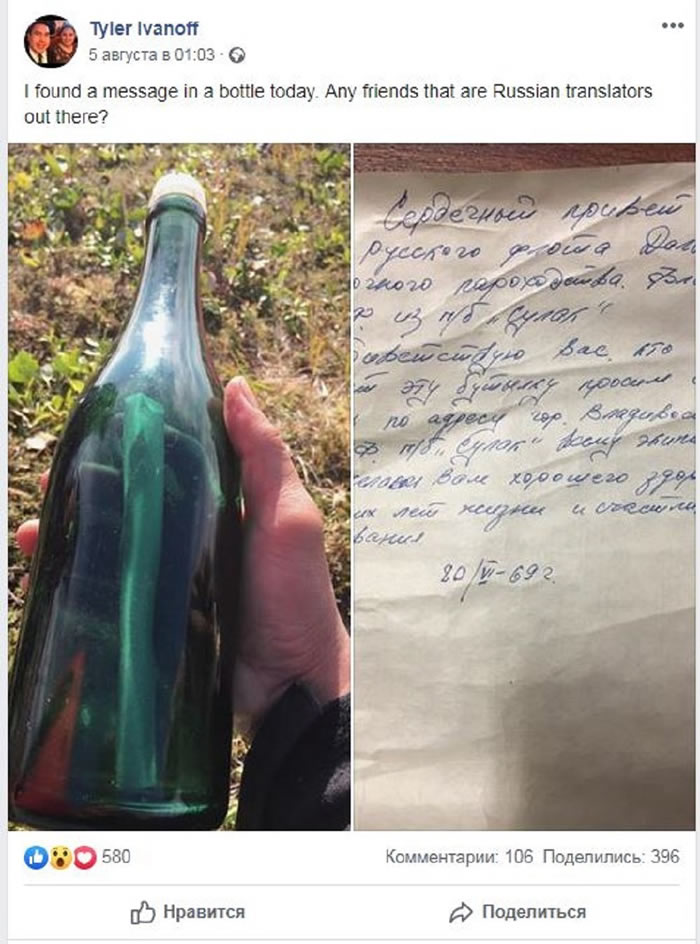 Tyler Ivanoff
5 августа в 01:03
I found a message in a bottle today. Any friends that are Russian translators
out there?
Сердечный привет
русского флота Дал
очного пароходства.
из п/б „Сулак“
Вас, кто
эту бутылку просим
по адресу гор. Владивос
п/б „Сулак“ всему экипа
Вам хорошего здор
их лет жизни и счастли
вания
20/VI-69 г.
580
Комментарии: 106 Поделились: 396
Нравится
Поделиться